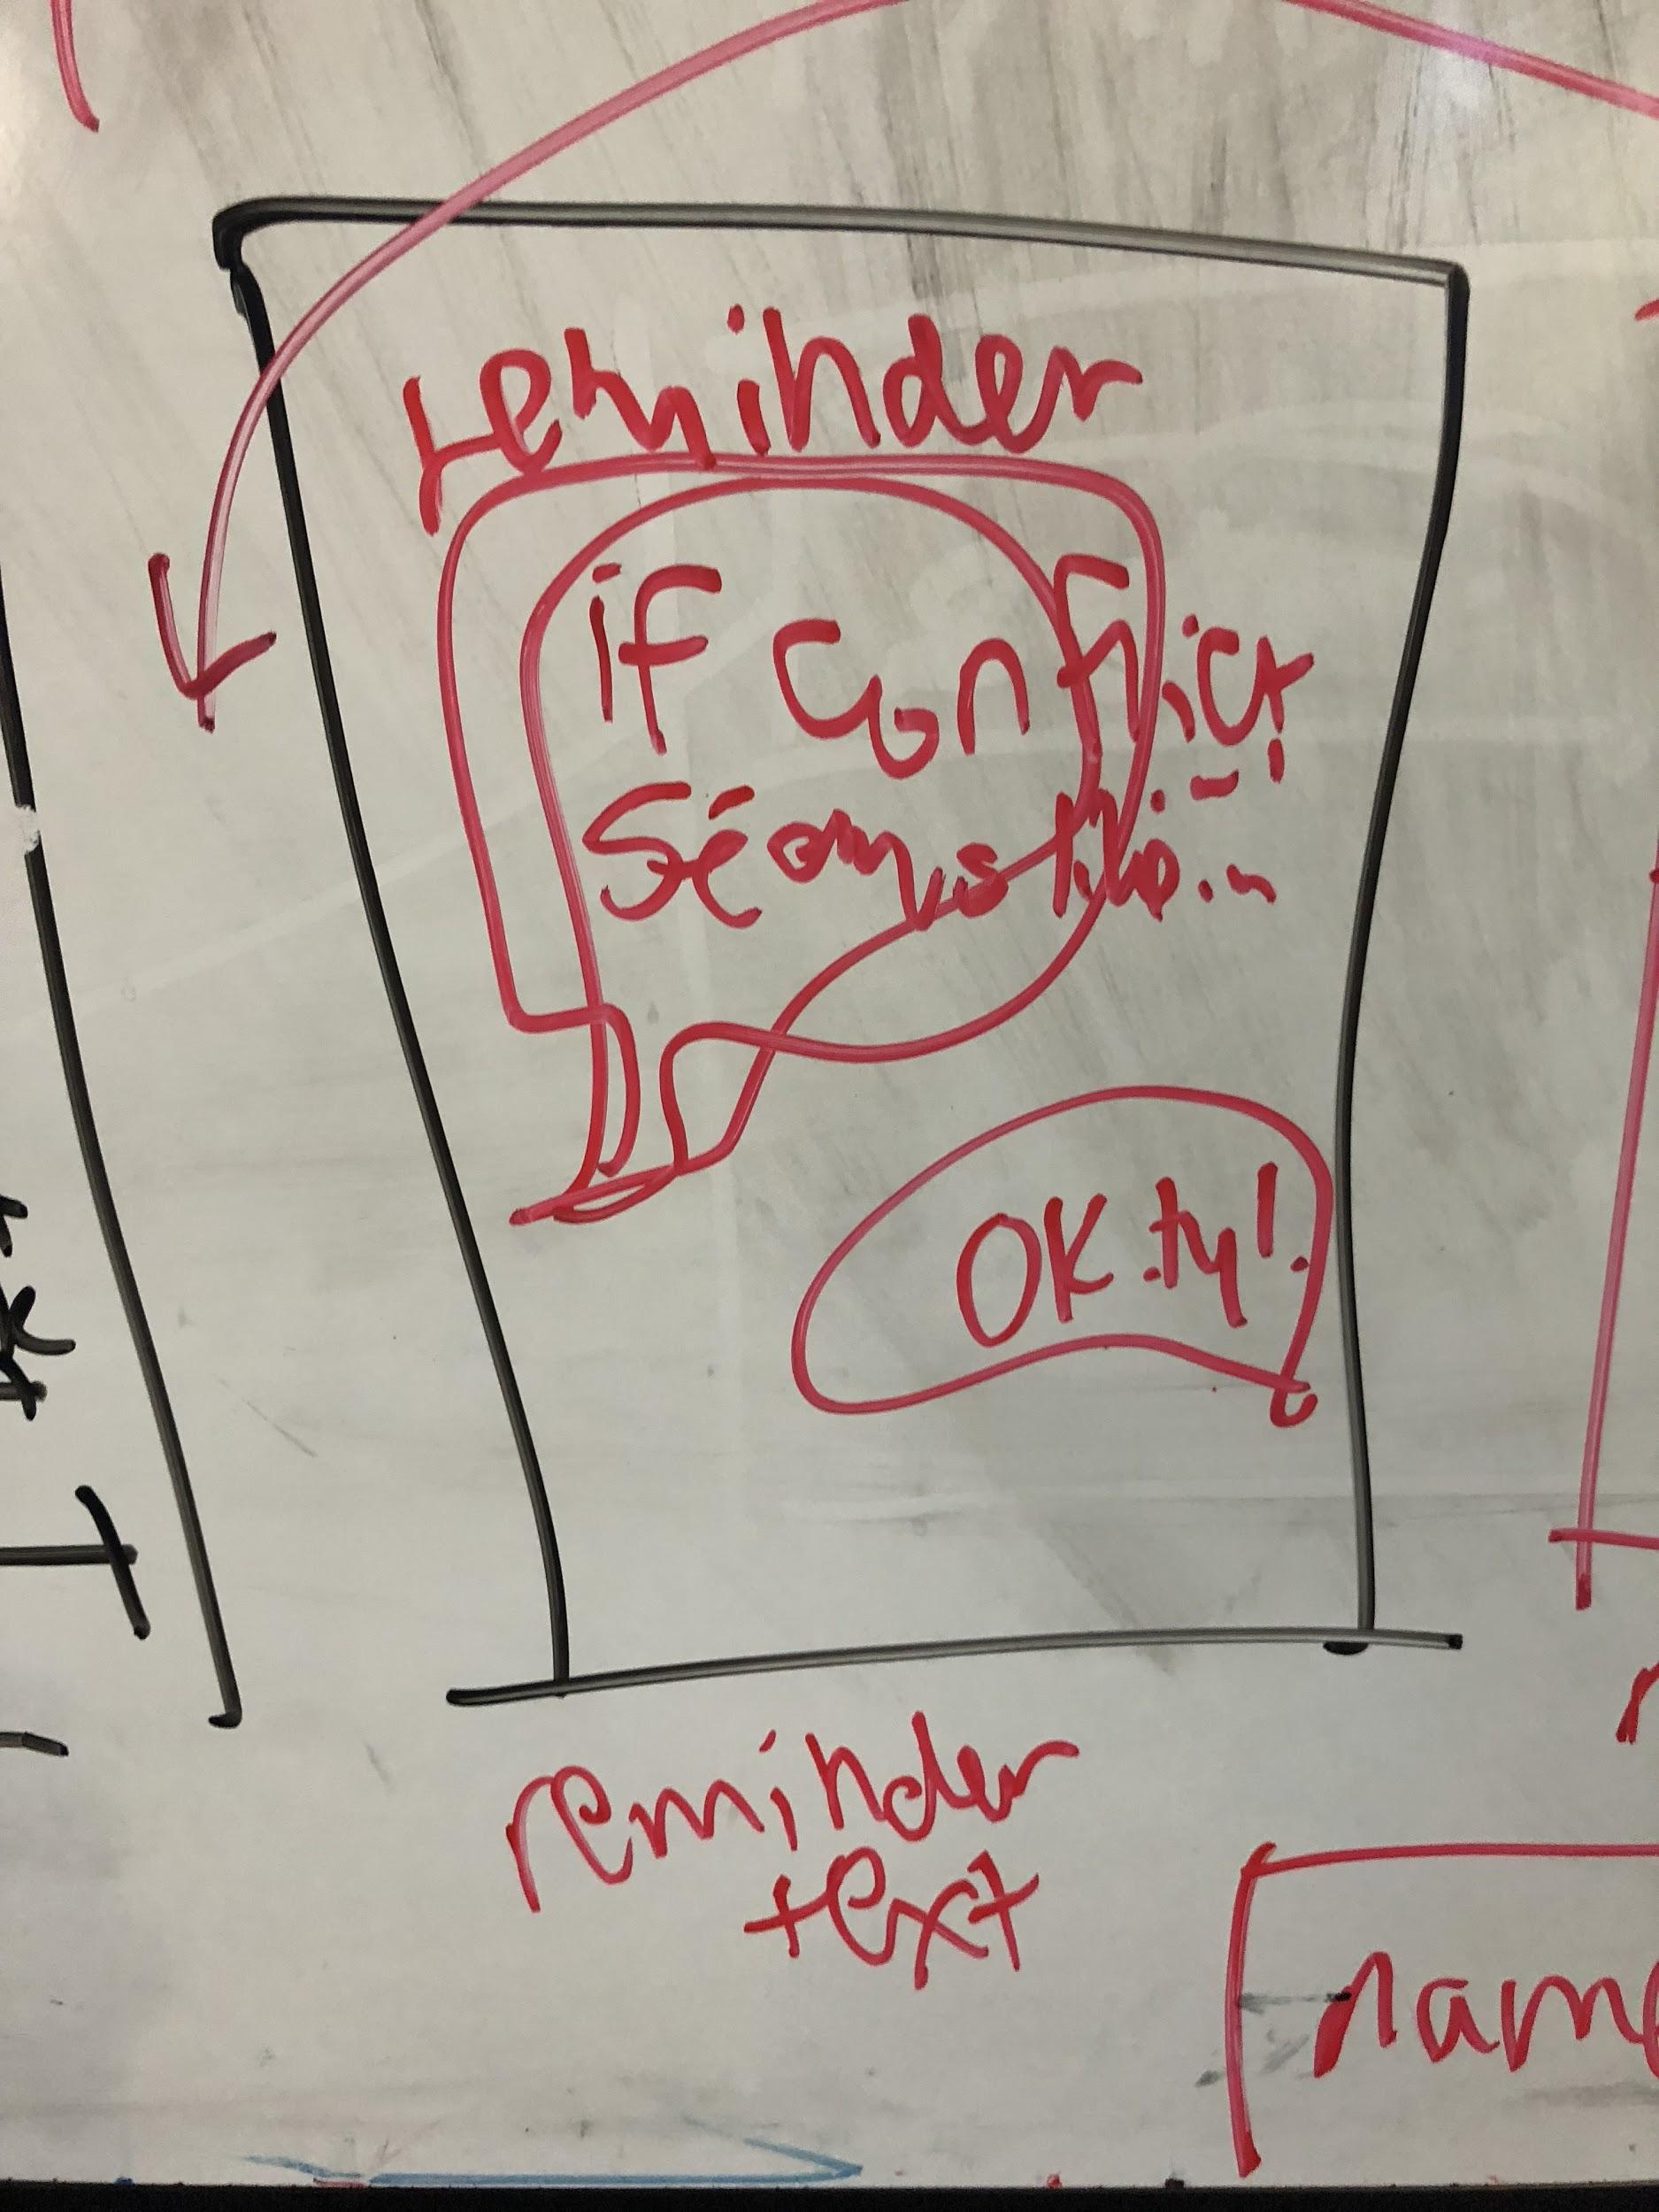 reminder
if conflict
OK ty!
reminder
text
name